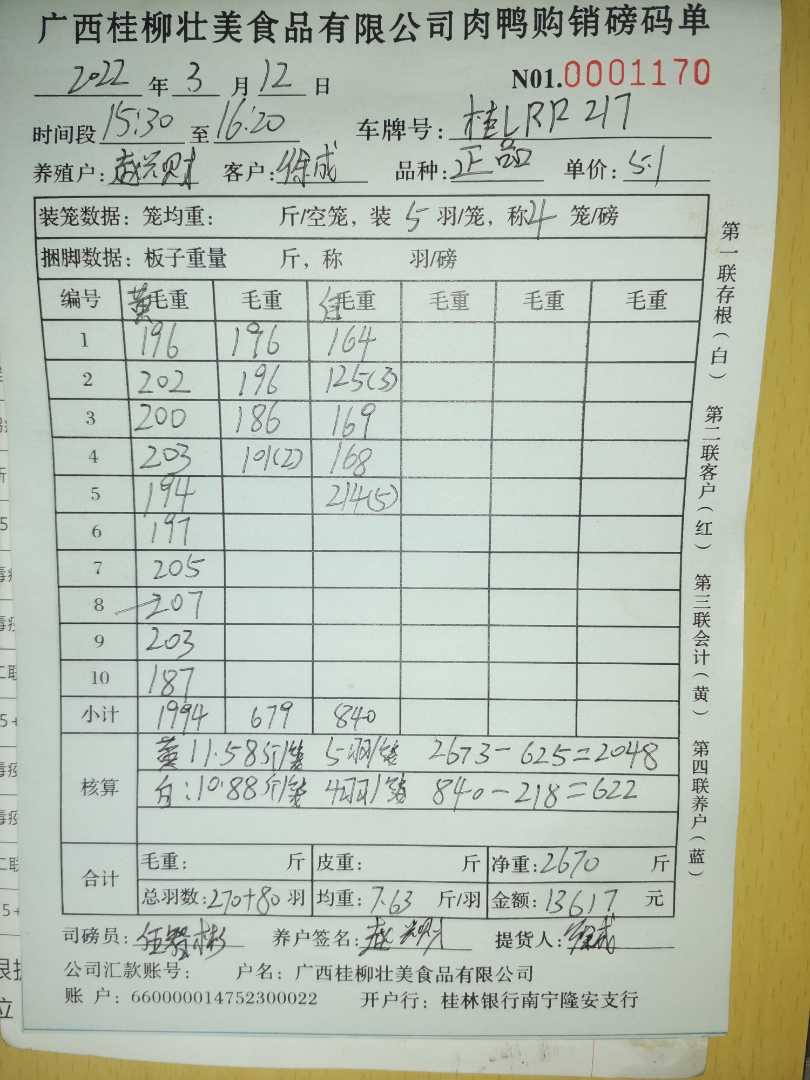 广西桂柳壮美食品有限公司肉鸭购销磅码单
2022 年 3 月 12 日 N01.0001170
时间段 15:30 至 16:20 车牌号: 桂LRR217
养殖户: 赵兴财 客户: 徐成 品种: 正品 单价: 5.1
装笼数据: 笼均重: 斤/空笼, 装 5 羽/笼, 称 4 笼/磅
捆脚数据: 板子重量 斤, 称 羽/磅
编号 黄毛重 毛重 白毛重 毛重 毛重 毛重
1 196 196 164
2 202 196 125(3)
3 200 186 169
4 203 101(2) 168
5 194 214(5)
6 197
7 205
8 207
9 203
10 187
小计 1994 679 840
核算 黄11.58斤/笼 5羽/笼 2673-625=2048
白:10.88斤/笼 4羽/笼 840-218=622
合计 毛重: 斤 皮重: 斤 净重:2670 斤
总羽数:270+80 羽 均重: 7.63 斤/羽 金额: 13617 元
司磅员: 彬 养户签名: 赵兴财 提货人: 徐成
公司汇款账号: 户名: 广西桂柳壮美食品有限公司
账 户: 660000014752300022 开户行: 桂林银行南宁隆安支行
第一联存根(白) 第二联客户(红) 第三联会计(黄) 第四联养户(蓝)